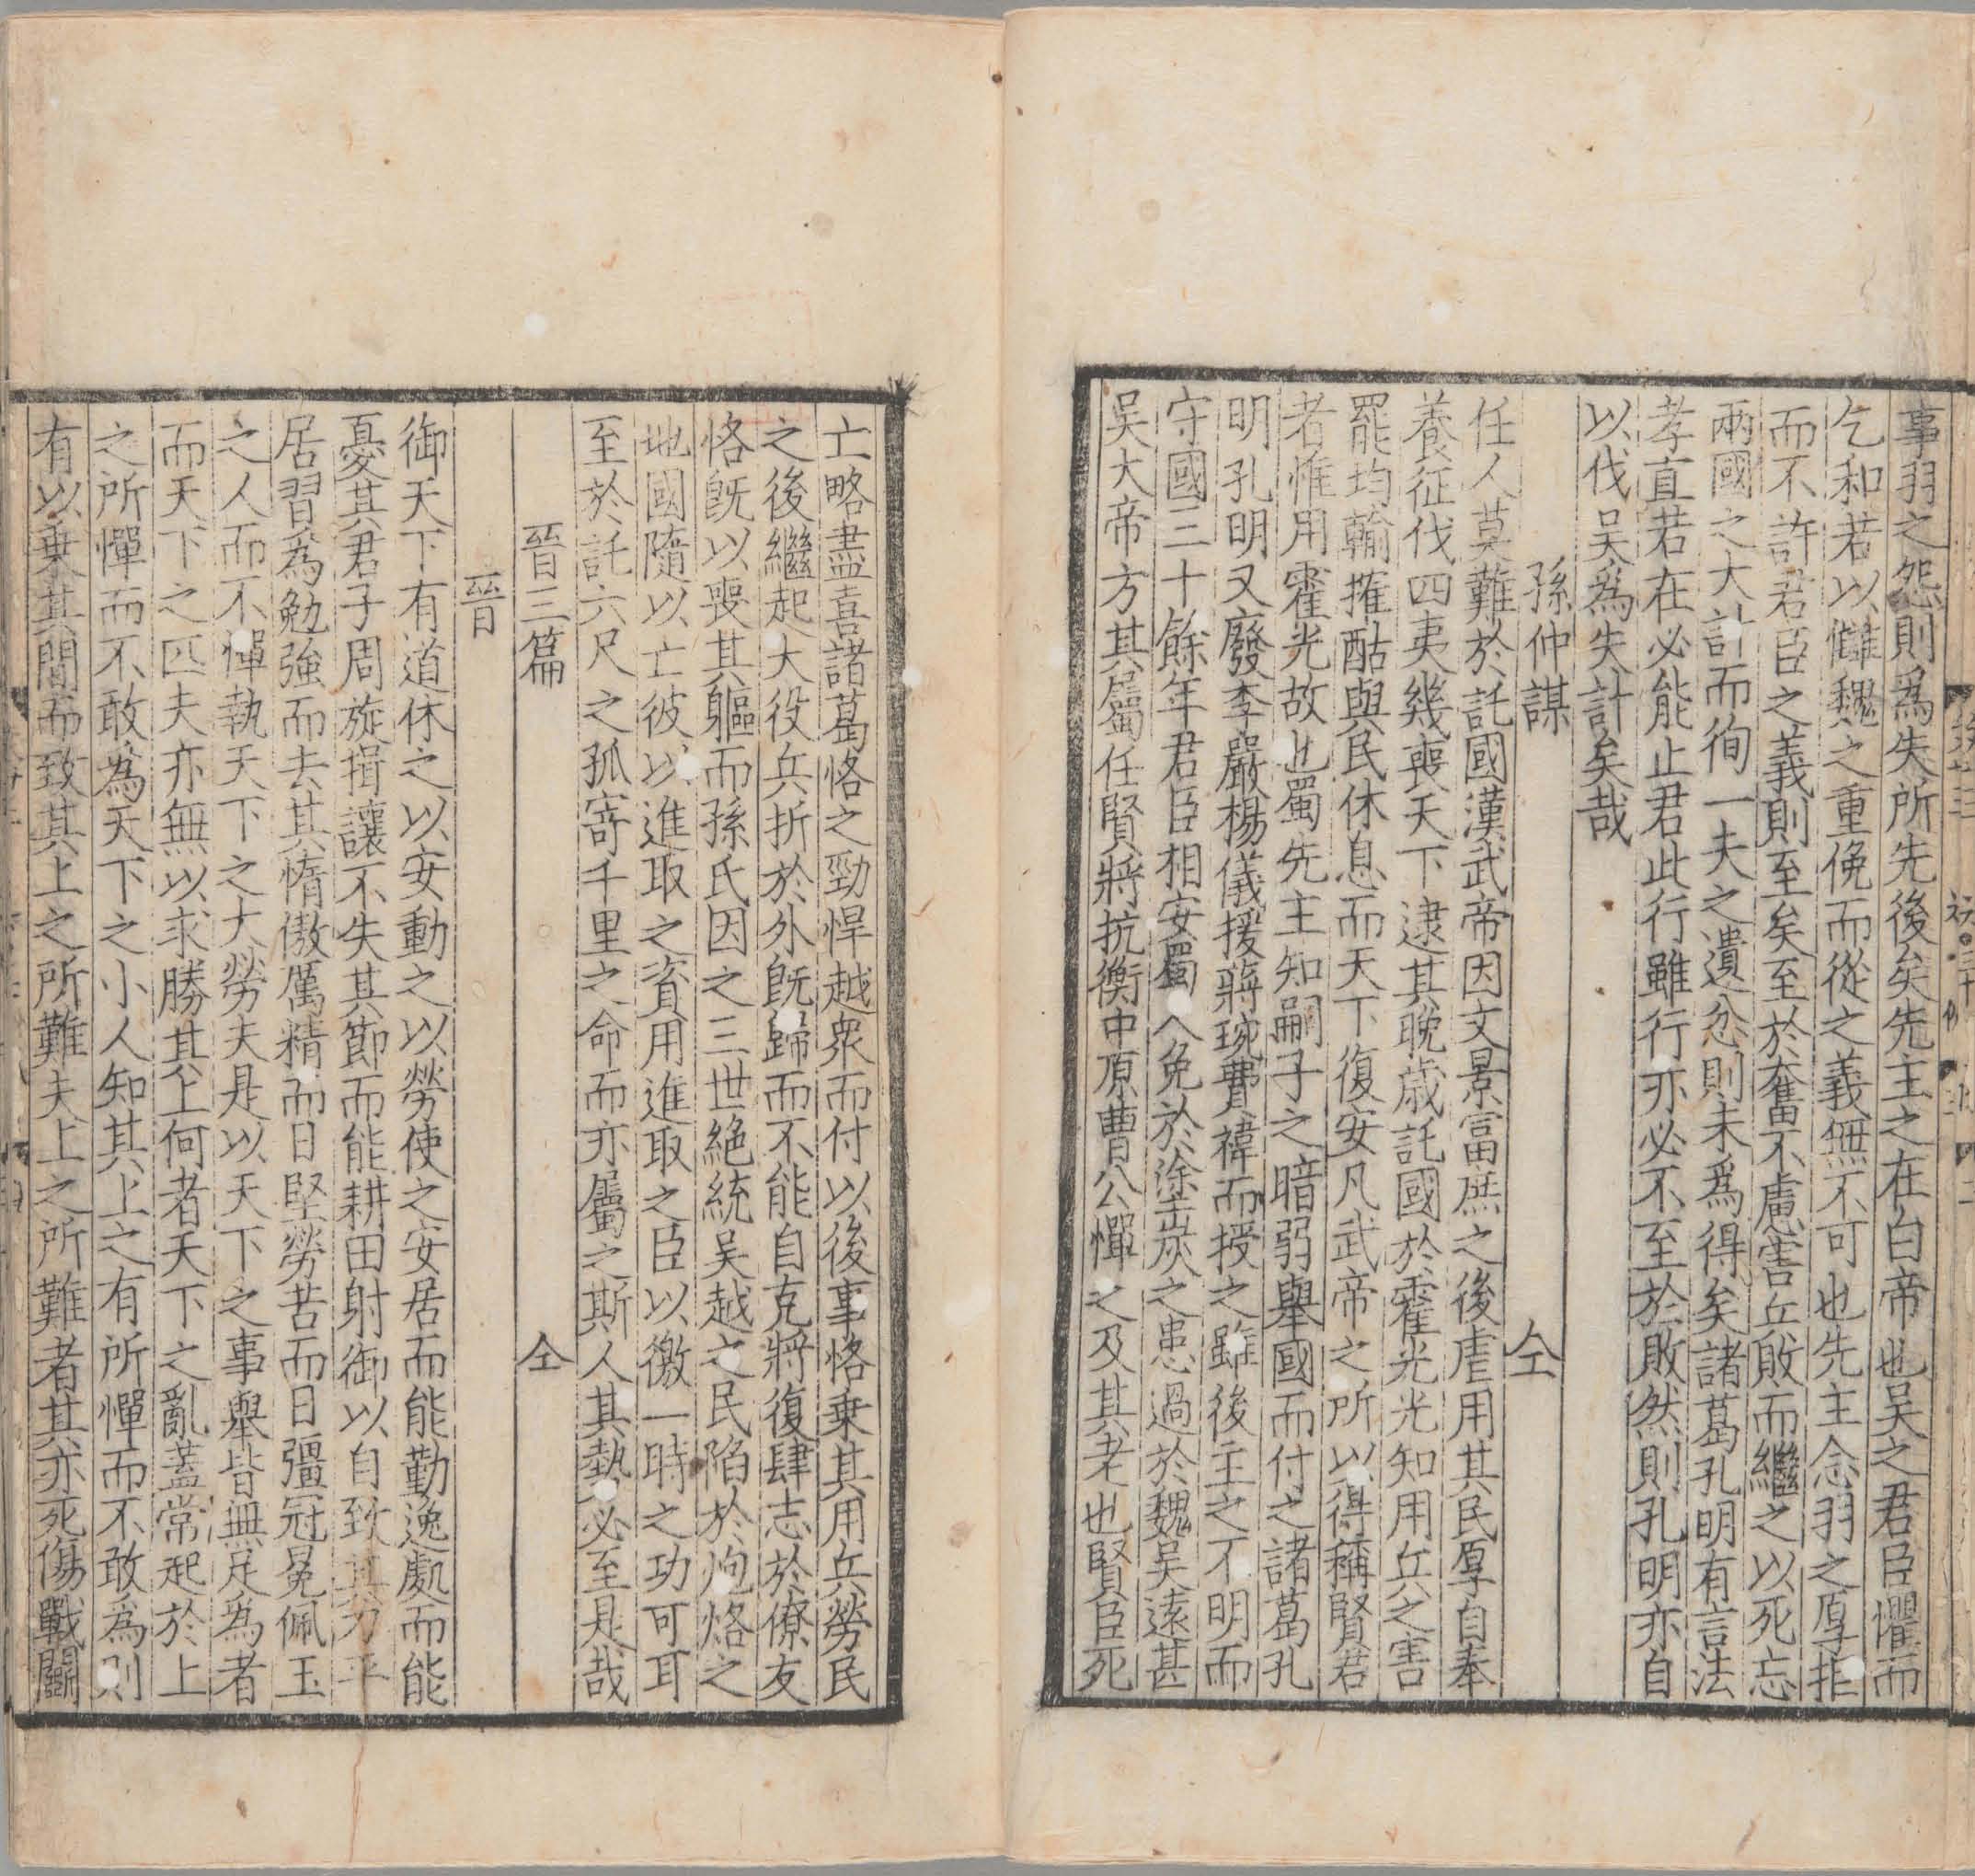 事羽之怨則爲失所先後矣先主之在白帝也吴之君臣懼而
乞和若以讎魏之重俛而從之義無不可也先主念羽之厚拒
而不許君臣之義則至矣至於奮不慮害丘敗而繼之以死忘
兩國之大計而徇一夫之遺忿則未爲得矣諸葛孔明有言法
孝直若在必能止君此行雖行亦必不至於敗然則孔明亦自
以伐吴爲失計矣哉
孫仲謀　仝
任人莫難於託國漢武帝因文景富庶之後虐用其民厚自奉
養征伐四夷幾喪天下逮其晚歳託國於霍光光知用兵之害
罷均輸搉酤與民休息而天下復安凡武帝之所以得稱賢君
者惟用霍光故也蜀先主知嗣子之暗弱舉國而付之諸葛孔
明孔明又廢李嚴楊儀援蔣琬費禕而授之雖後主之不明而
守國三十餘年君臣相安蜀人免於塗炭之患過於魏吴遠甚
吴大帝方其屬任賢將抗衡中原曹公憚之及其老也賢臣死
亡略盡喜諸葛恪之勁悍越衆而付以後事恪乗其用兵勞民
之後繼起大役兵折於外旣歸而不能自克將復肆志於僚友
恪旣以喪其軀而孫氏因之三世絶統吴越之民陷於炮烙之
地國隨以亡彼以進取之資用進取之臣以徼一時之功可耳
至於託六尺之孤寄千里之命而亦屬之斯人其𫝑必至是哉
晉三篇　仝
晉
御天下有道休之以安動之以勞使之安居而能勤逸處而能
憂其君子周旋揖讓不失其節而能耕田射御以自致其力平
居習爲勉強而去其惰傲厲精而日堅勞苦而日彊冠冕佩玉
之人而不憚執天下之大勞夫是以天下之事舉皆無足爲者
而天下之匹夫亦無以求勝其上何者天下之亂蓋常起於上
之所憚而不敢爲天下之小人知其上之有所憚而不敢爲則
有以乗其間而致其上之所難夫上之所難者其亦死傷戰鬬